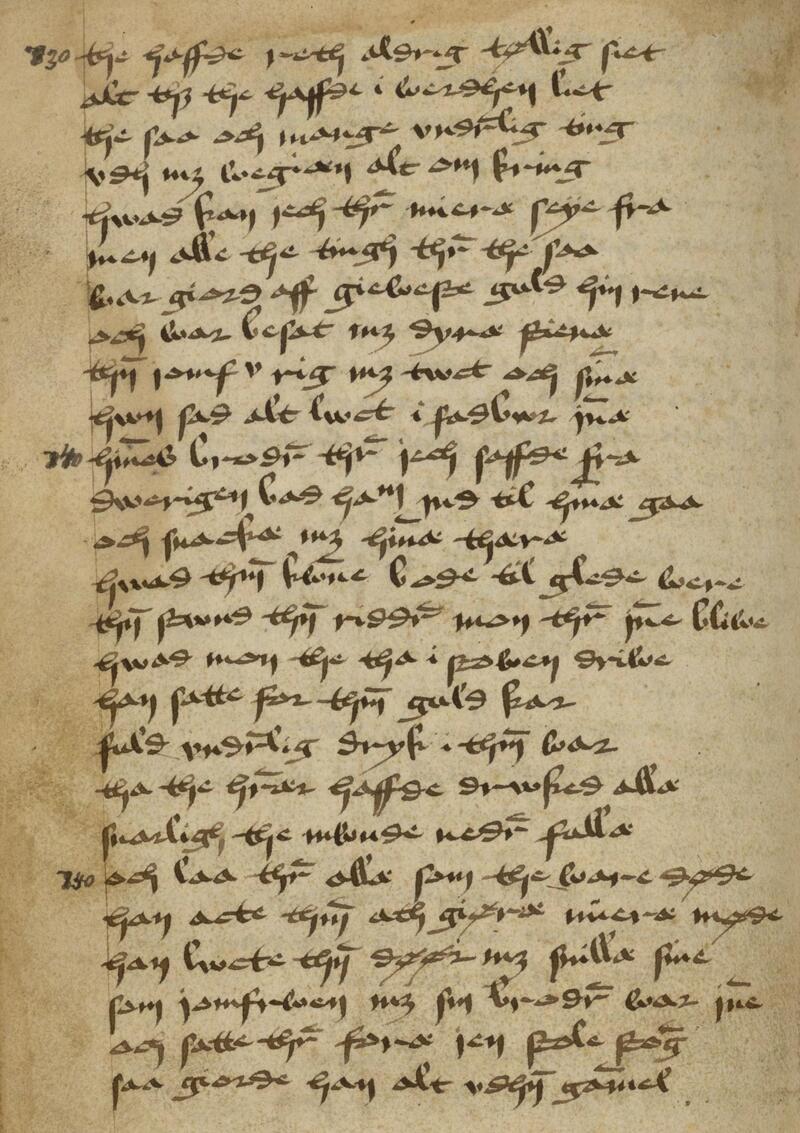 730 the haffde reth aldrig tøllig siet
alt thʒ the haffde i werdhen liet
the saa och mange vndr̄lig ting
vdh mʒ wegiæn alt om kring
hwad kan jech thr̄ mieræ seye fra
men alle the tingh thr̄ the saa
war giord aff gieweste guld hin rene
och war besat mʒ dyræ stienæ
thn̄ jomfv rig mʒ twct och sin̄æ
hwn sad alt lwct i fadbwr jn̄æ
740 hin̄es brodr̄ thr̄ jech saffde fra
dwerigen bad ham jnd til hin̄æ gaa
och snackæ mʒ hin̄æ thæræ
hwad thm̄ kwn̄e bode til glede were
thn̄ stwnd thn̄ riddr̄ mon thr̄ jn̄e bliwe
hwad mon the tha i stowen driwe
han satte for thm̄ guld kar
fuld vndr̄lig dryk i thm̄ war
tha the hr̄ær haffde drwked allæ
snarligh the mwnde nedr̄ fallæ
750 och laa thr̄ allæ som the ware døde
han acte thm̄ ath giøræ mieræ møde
han lwcte thn̄ døør mʒ snillæ sine
som jomfrwen mʒ sin brodr̄ war jn̄e
och satte thr̄ foræ jen stole stoḡ
saa giorde han alt vdhn̄ gam̄el